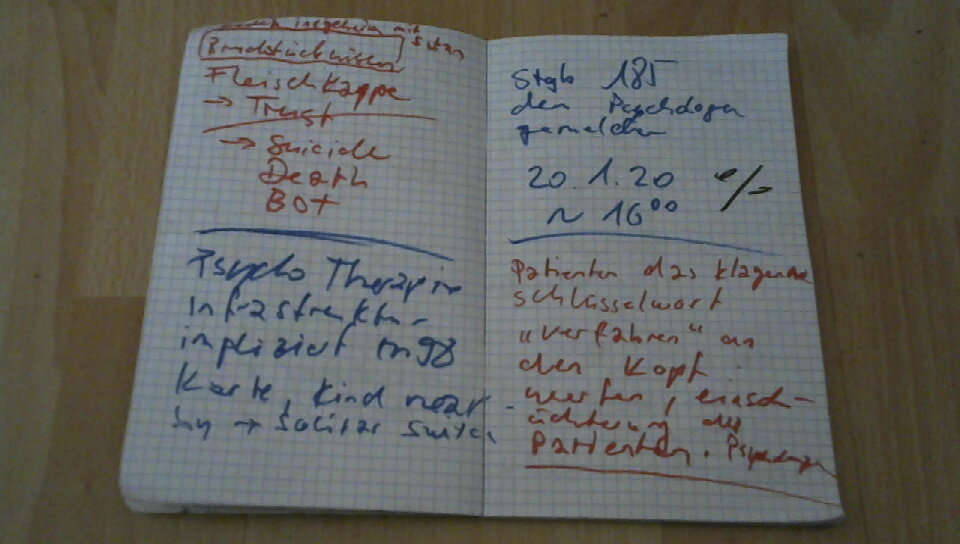 mit
Fleischkappe
→ Trust
→ Suicide
Death
Bot
Psycho Therapie
infrastruktur
impliziert
Karte, Kind near
→ Solitär Switch
StGB 185
den Psychologen
gemolden
20.1.20 •/-
~ 16⁰⁰
Patienten das klagende
schlüsselwort
"verfahren" an
den Kopf
werfen, einsch-
üchterung des
Patienten.